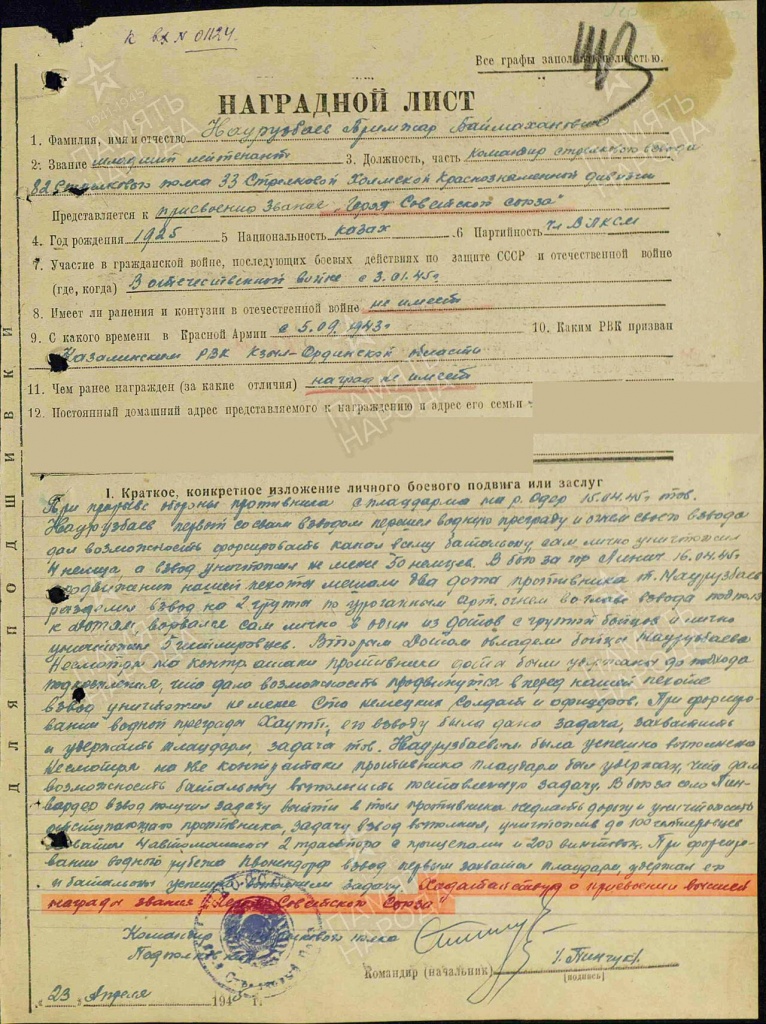 К вх № 01124.
Все графы заполнять полностью.
НАГРАДНОЙ ЛИСТ
1. Фамилия, имя и отчество Наурузбаев Примжар Баймаханович
2. Звание младший лейтенант 3. Должность, часть командир стрелкового взвода
82 Стрелкового полка 33 Стрелковой Холмской Краснознаменной дивизии
Представляется к присвоению звания „Героя Советского союза"
4. Год рождения 1925 5 Национальность казах 6 Партийность чл ВЛКСМ
7. Участие в гражданской войне, последующих боевых действиях по защите СССР и отечественной войне
(где, когда) В отечественной войне с 3.01.45г
8. Имеет ли ранения и контузии в отечественной войне не имеет
9. С какого времени в Красной Армии с 5.09.1943г 10. Каким РВК призван
Казалинским РВК Кзыл-Ординской области
11. Чем ранее награжден (за какие отличия) наград не имеет
12. Постоянный домашний адрес представляемого к награждению и адрес его семьи
I. Краткое, конкретное изложение личного боевого подвига или заслуг
При прорыве обороны противника с плацдарма на р. Одер 15.04.45г тов.
Наурузбаев первый со своим взводом перешел водную преграду и огнем своего взвода
дал возможность форсировать канал всему батальону сам лично уничтожил
4 немца, а взвод уничтожил не менее 50 немцев. В бою за гор 16.04.45г
продвижению нашей пехоты мешали два дота противника т. Наурузбаев
разделил взвод на 2 группы под ураганным арт. огнем во главе взвода
к дотам, ворвался сам лично в один из дотов с группой бойцов и лично
уничтожил 5 гитлеровцев. Вторым Дотом овладели бойцы Наурузбаева
Несмотря на контр атаки противника доты были удержаны до подхода
подкрепления, что дало возможность продвинутся в перед нашей пехоте
взвод уничтожил не менее Сто немецких солдат и офицеров. При форсиро-
вании водной преграды его взводу была дана задача, захватить
и удержать плацдарм, задача тов. Наурузбаевым была успешно выполнена
Несмотря на контратаки противника плацдарм был удержан, что дало
возможность батальону выполнить поставленную задачу. В бою за село
взвод получил задачу выйти в тыл противника дорогу и уничтожить
отступающего противника, задачу взвод выполнил, уничтожив до 100
4 автомашины 2 трактора с прицепами и 200 винтовок. При форсиро-
вании водного рубежа взвод первым захватил плацдарм, удержал его
и батальон успешно задачу. Ходатайствую о присвоении высшей
награды звания „Героя Советского Союза"
Командир стрелкового полка
Подполковник
Командир (начальник) /Пинчук/
(подпись)
„23" Апреля 1945 г.
ДЛЯ ПОДШИВКИ
ПАМЯТЬ НАРОДА